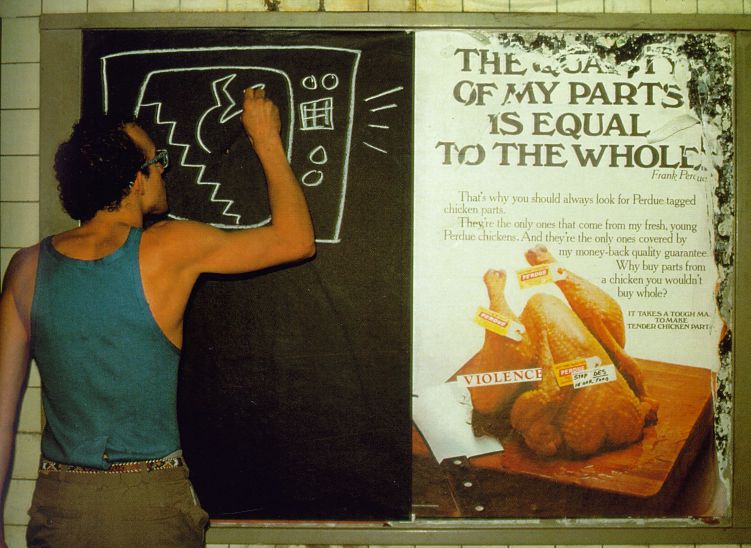 OF MY PARTS
IS EQUAL
TO THE WHOLE.
Frank Perdue
That's why you should always look for Perdue tagged
chicken parts.
They're the only ones that come from my fresh, young
Perdue chickens. And they're the only ones covered by
my money-back quality guarantee.
Why buy parts from
a chicken you wouldn't
buy whole?
IT TAKES A TOUGH MA
TO MAKE
TENDER CHICKEN PART
PERDUE
PERDUE
PERDUE
VIOLENCE
STOP DES
IN OUR FOOD